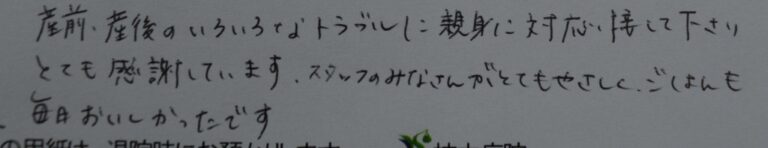 産前、産後のいろいろなトラブルに親身に対応、接して下さり
とても感謝しています、スタッフのみなさんがとてもやさしく、ごはんも
毎日おいしかったです
の用紙は、退院時にお預かします